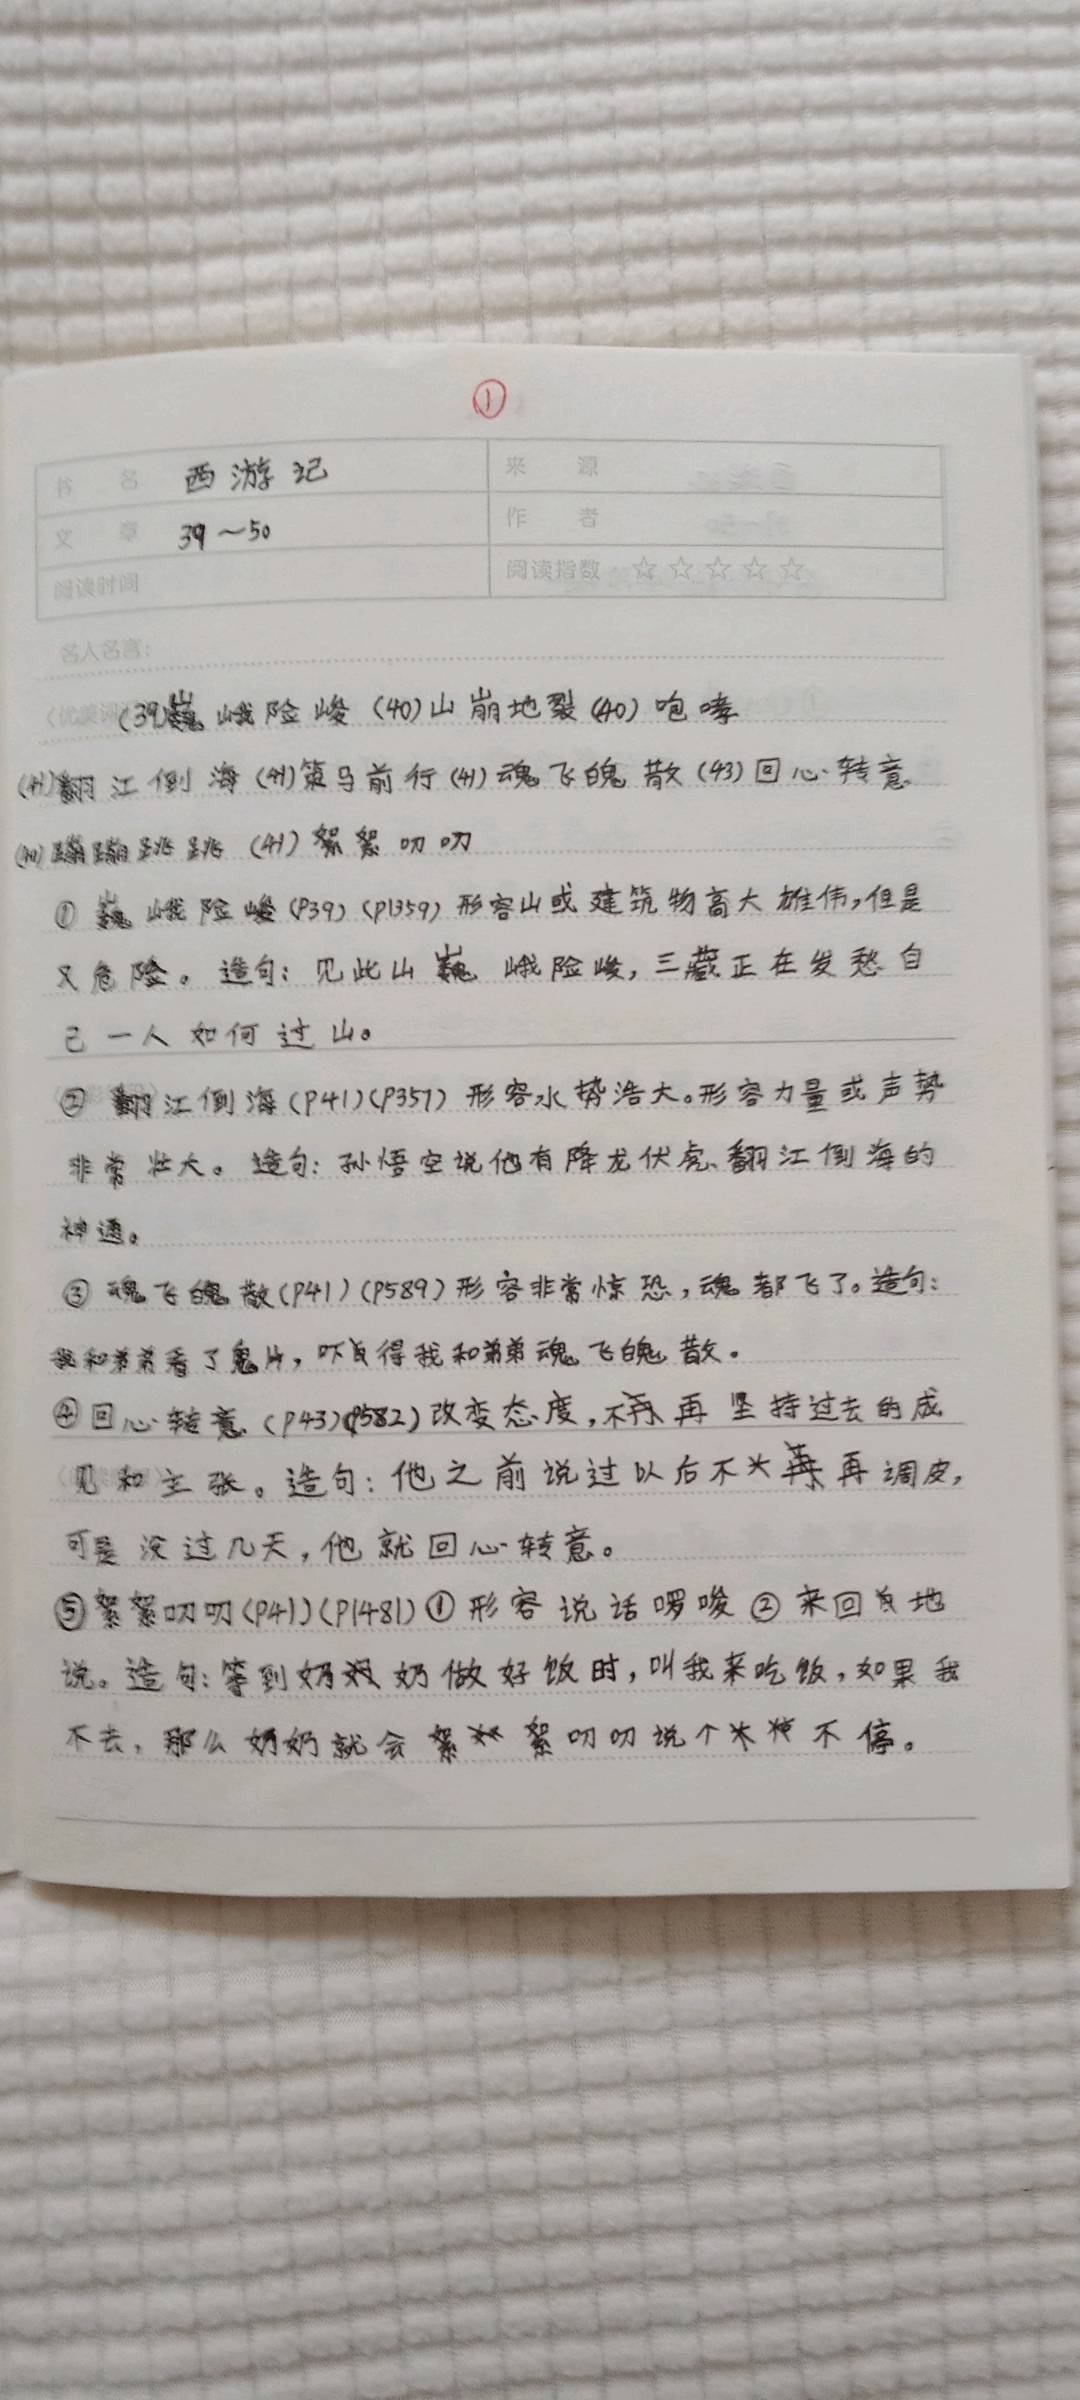 ①
书 名 西游记 来 源
文 章 39~50 作 者
阅读时间 阅读指数 ☆☆☆☆☆
名人名言:
(39)巍峨险峻 (40)山崩地裂 (40)咆哮
(41)翻江倒海 (41)策马前行 (41)魂飞魄散 (43)回心转意
(40)蹦蹦跳跳 (41)絮絮叨叨
①巍峨险峻(P39)(P1359)形容山或建筑物高大雄伟,但是
又危险。造句:见此山巍峨险峻,三藏正在发愁自
己一人如何过山。
②翻江倒海(P41)(P357)形容水势浩大。形容力量或声势
非常壮大。造句:孙悟空说他有降龙伏虎、翻江倒海的
神通。
③魂飞魄散(P41)(P589)形容非常惊恐,魂都飞了。造句:
我和弟弟看了鬼片,吓得我和弟弟魂飞魄散。
④回心转意(P43)(P582)改变态度,不再坚持过去的成
见和主张。造句:他之前说过以后不再调皮,
可是没过几天,他就回心转意。
⑤絮絮叨叨(P41)(P1481)①形容说话啰唆②来回地
说。造句:等到奶奶做好饭时,叫我来吃饭,如果我
不去,那么奶奶就会絮絮叨叨说个不停。